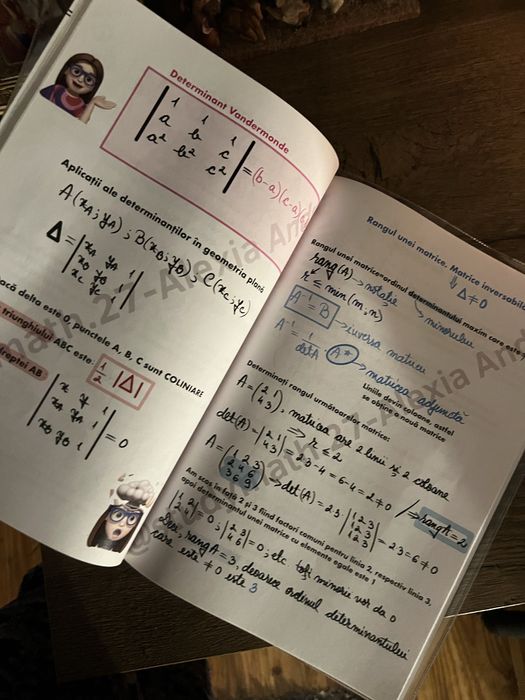 Determinant Vandermonde
| 1 1 1 |
| a b c |
| a² b² c² | =(b-a)(c-a)(
Aplicații ale determinanților în geometria plană
A(xA; yA) ; B(xB; yB) ; C(xC; yC)
Δ = | xA yA 1 |
| xB yB 1 |
| xC yC 1 |
acă delta este 0, punctele A, B, C sunt COLINIARE
triunghiului ABC este: 1/2 |Δ|
dreptei AB
| x y 1 |
| xA yA 1 |
| xB yB 1 | = 0
Rangul unei matrice. Matrice inversabil
↓ Δ≠0
Rangul unei matrice=ordinul determinantului maxim care este
rang(A) → notație
minorului
r ≤ min(m; n)
A⁻¹ = B → inversa matricei
A⁻¹ = 1/detA · A* → matricea adjunctă
Liniile devin coloane, astfel
se obține o nouă matrice
Determinați rangul următoarelor matrice:
A = (2 1
4 3), matricea are 2 linii și 2 coloane
⇒ r ≤ 2
det(A) = |2 1
4 3| = 2·3-4 = 6-4 = 2 ≠ 0 ⇒ rang A = 2
A = (1 2 3
2 4 6
3 6 9) ⇒ det(A) = 2·3 · |1 2 3
1 2 3
1 2 3| = 2·3 = 6 ≠ 0
Am scos în față 2 și 3 fiind factori comuni pentru linia 2, respectiv linia 3,
apoi determinantul unei matrice cu elemente egale este 1
|1 2
2 4| = 0; |2 3
4 6| = 0; etc toți minorii vor da 0
deci, rang A = 3, deoarece ordinul determinantului
care este ≠ 0 este 3
math.27-Alexia And
@studymath.27-Alexia And